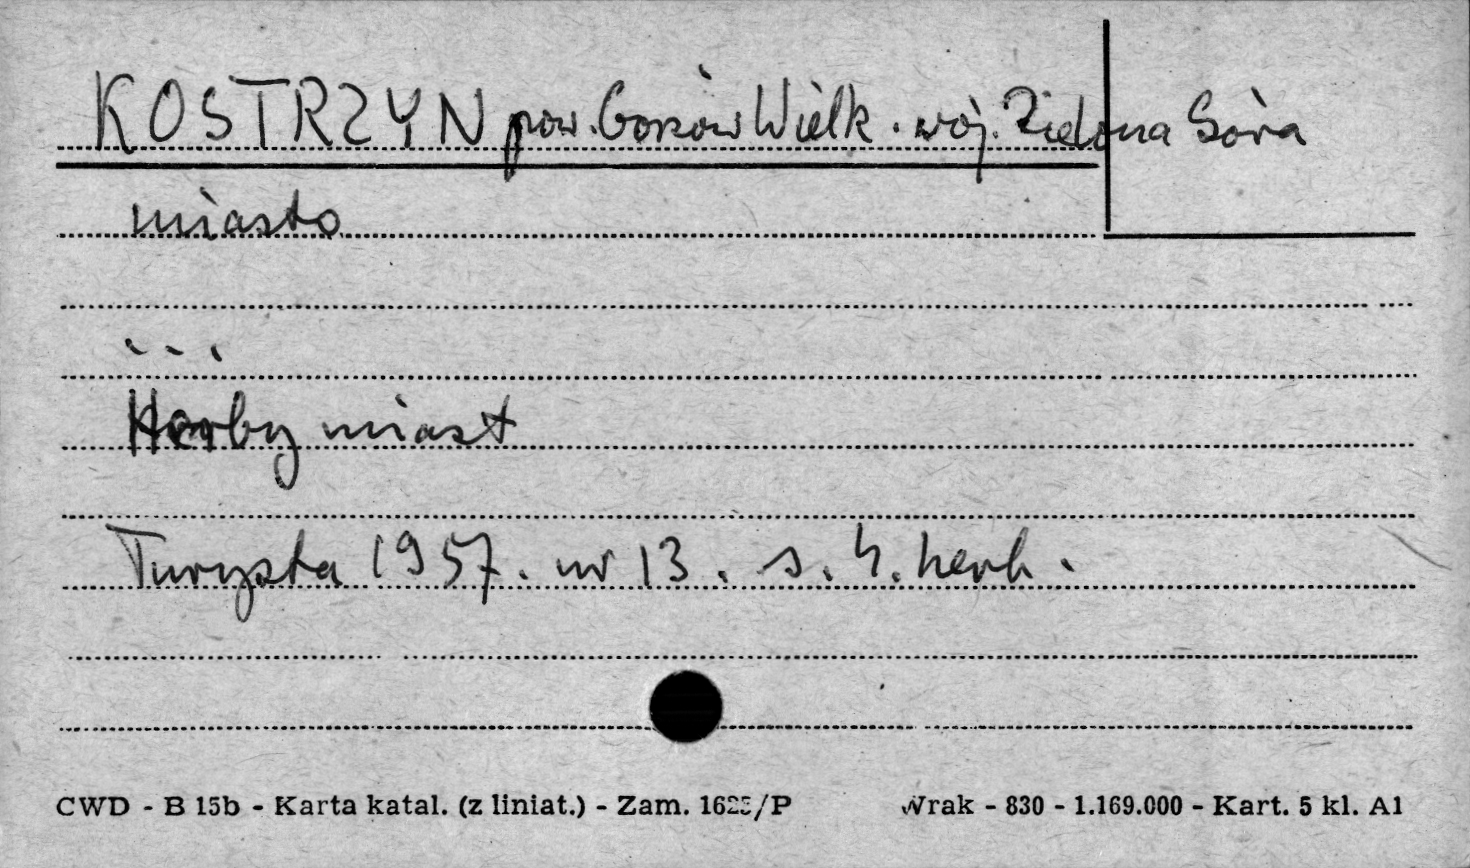 KOSTRZYN pow. Gorzów Wielk. woj. Zielona Góra
miasto
...
Herby miast
Turysta 1957. nr 13. s. 4. herb.
CWD - B 15b - Karta katal. (z liniat.) - Zam. 1625/P Wrak - 830 - 1.169.000 - Kart. 5 kl. A1